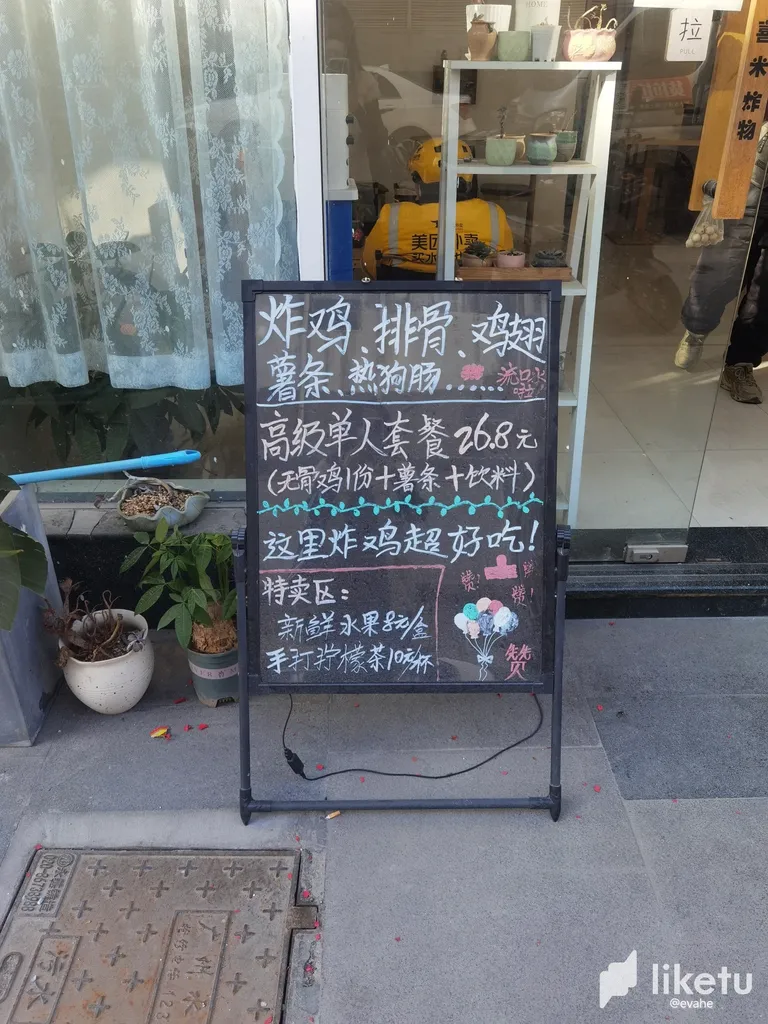 HOME
拉
PULL
喜米炸物
美团外卖
炸鸡、排骨、鸡翅
薯条、热狗肠……流口水啦!
高级单人套餐26.8元
(无骨鸡1份+薯条+饮料)
这里炸鸡超好吃!
特卖区:
赞!
赞!
新鲜水果8元/盒
手打拧檬茶10元/杯
赞
污水
liketu
@evahe